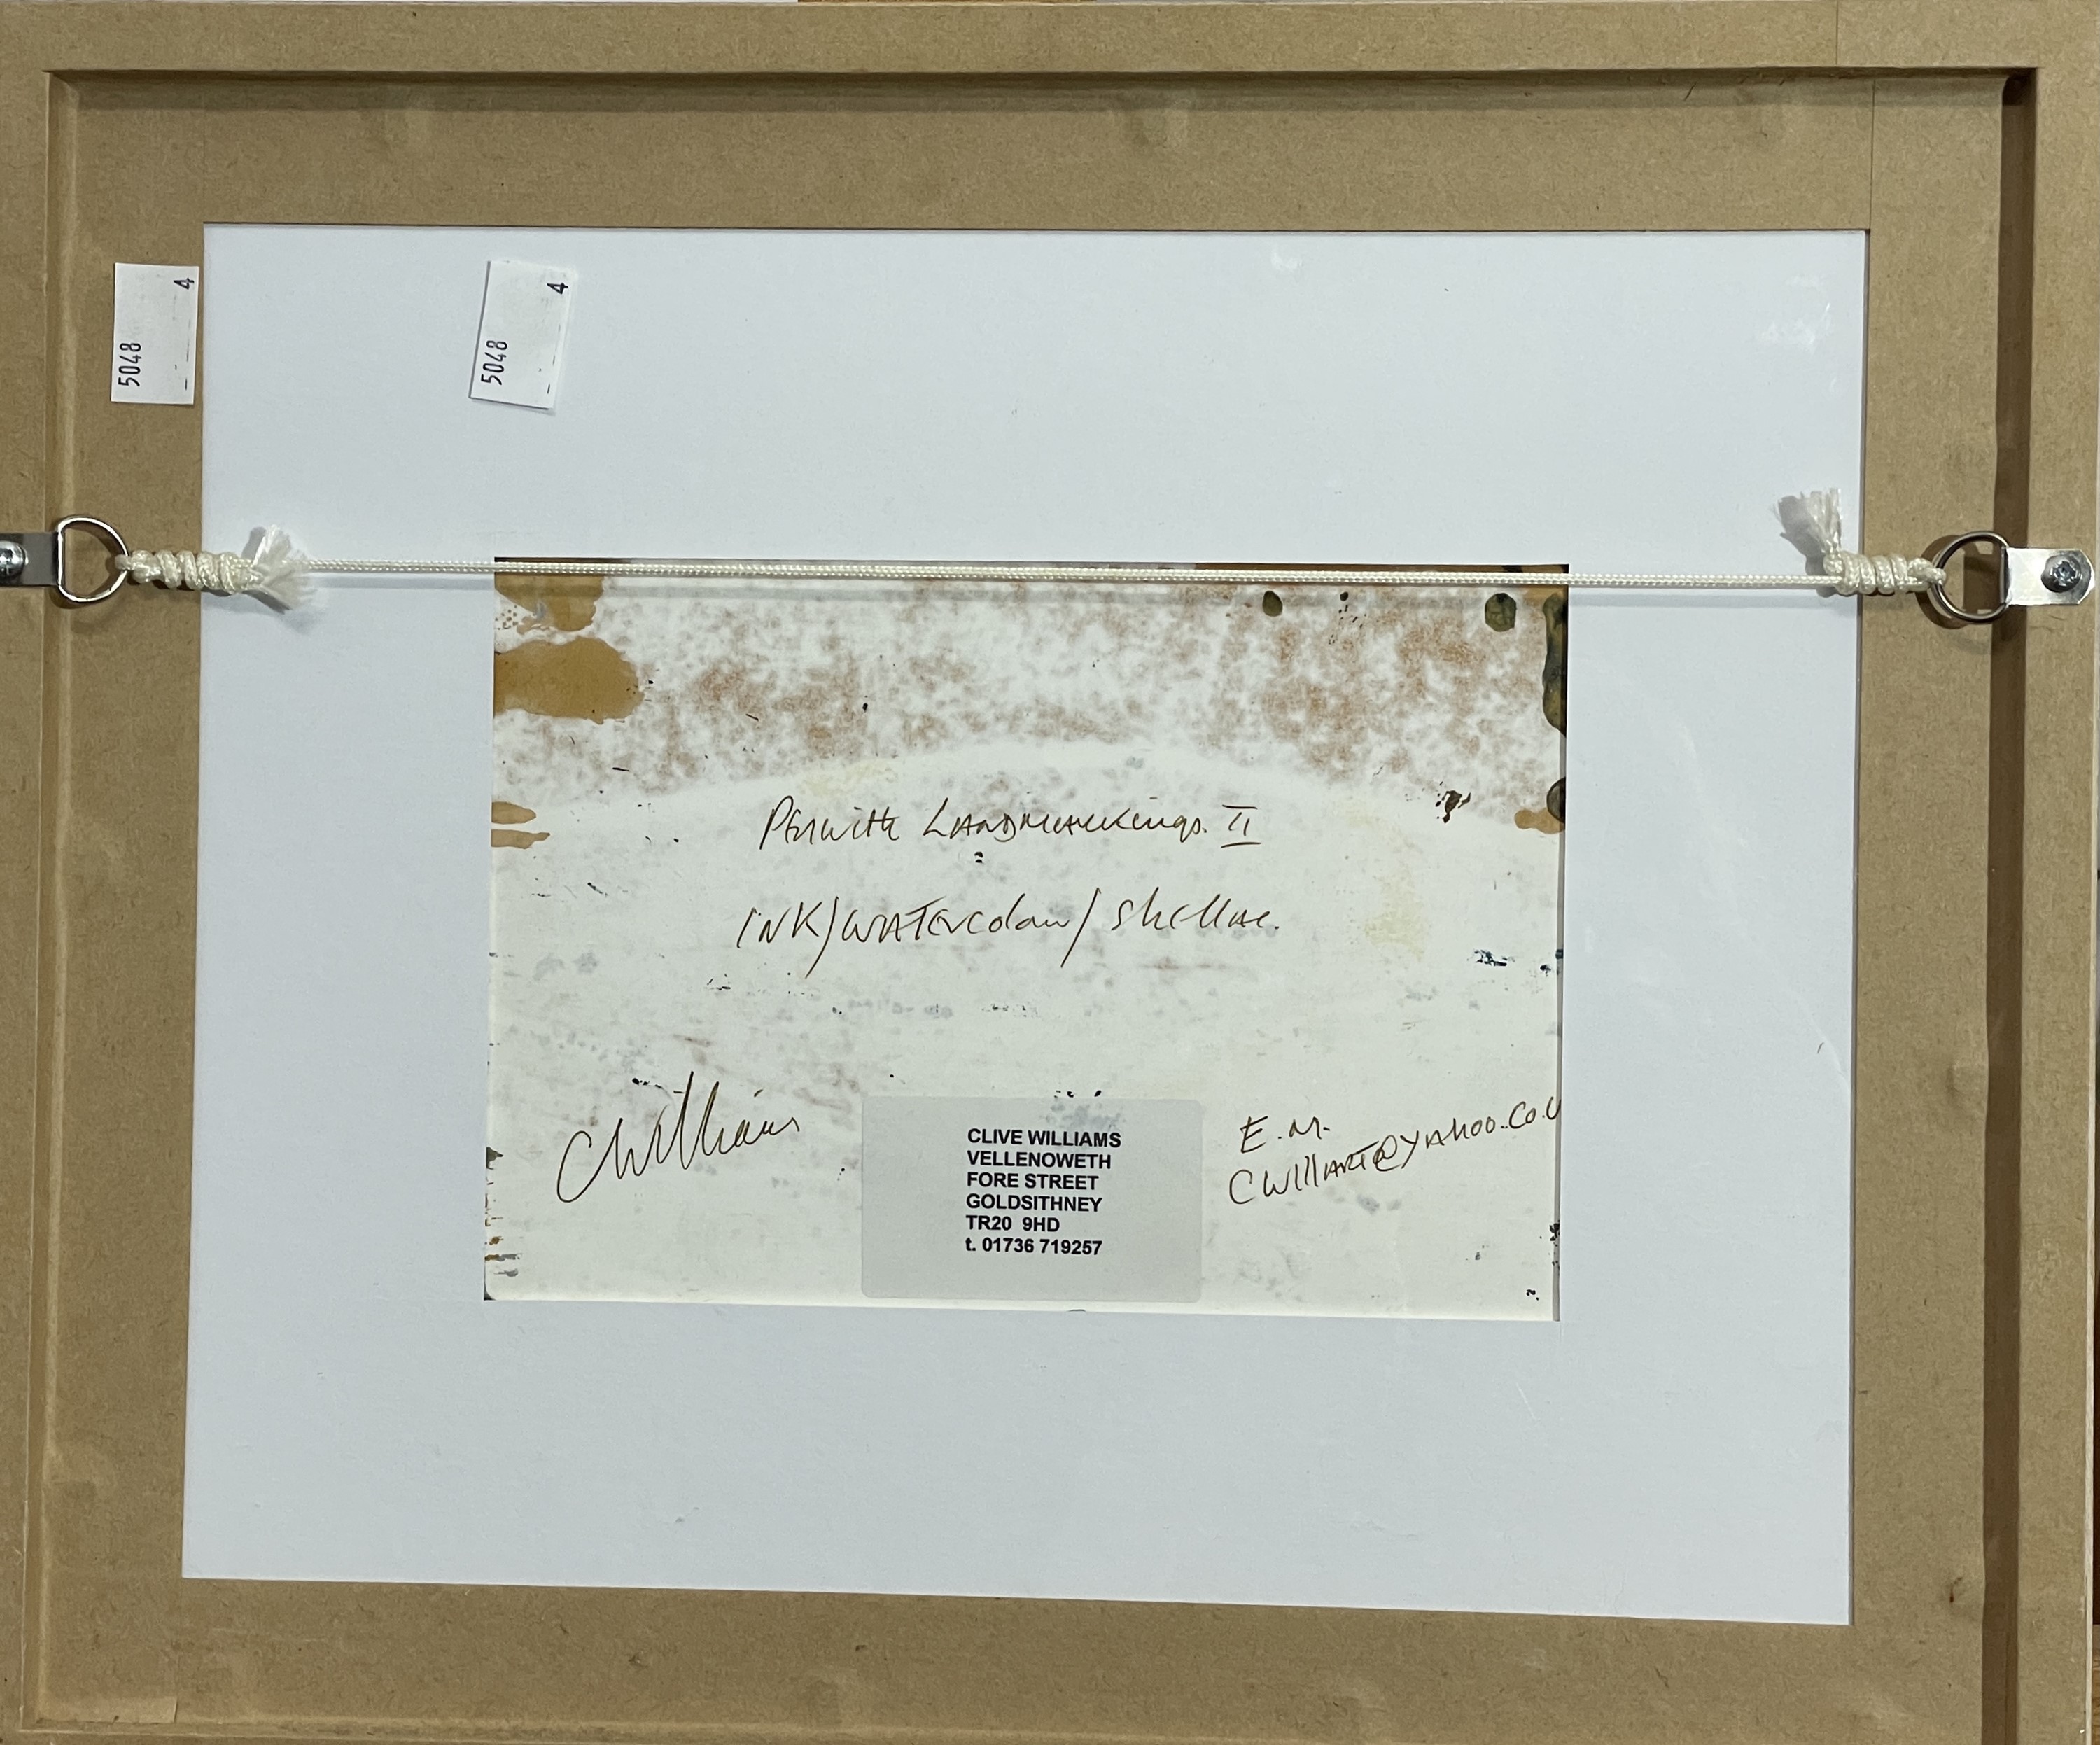 5048
4
5048
4
Penwith Landmarkings. II
INK/WATERcolour/Shellac.
CWilliams
CLIVE WILLIAMS
VELLENOWETH
FORE STREET
GOLDSITHNEY
TR20 9HD
t. 01736 719257
E.M.
CWIllIART@YAHOO.CO.U